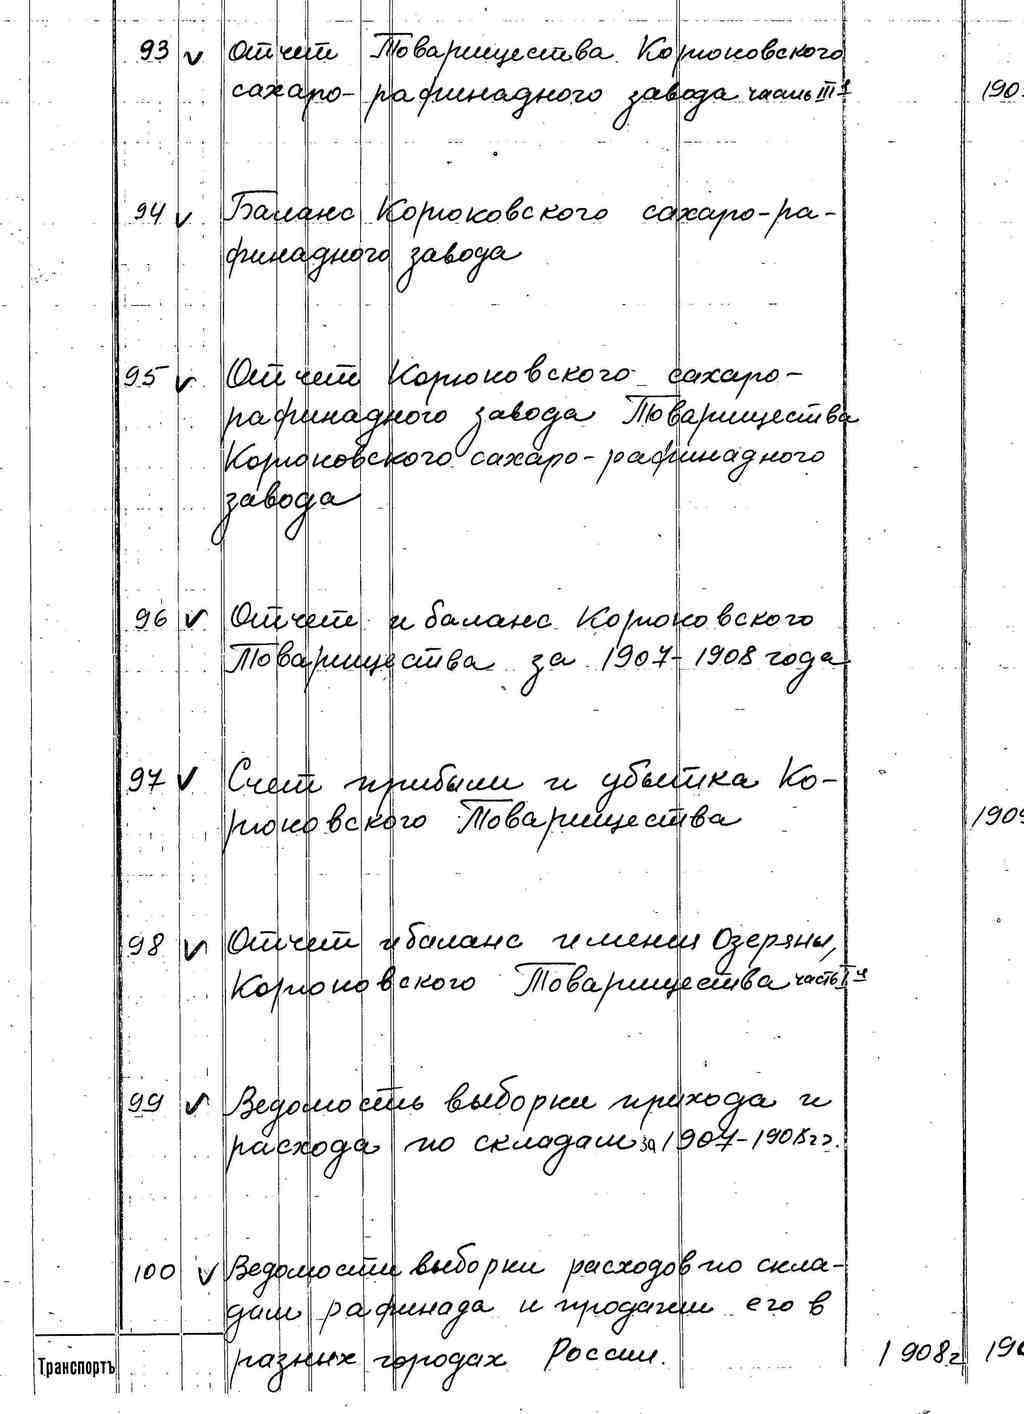 93 v Отчет Товарищества Корюковского
сахаро-рафинадного завода часть III я
190
94 v Баланс Корюковского сахаро-ра-
финадного завода
95 v Отчет Корюковского сахаро-
рафинадного завода Товарищества
Корюковского сахаро-рафинадного
завода
96 v Отчет и баланс Корюковского
Товарищества за 1907-1908 года
97 v Счет прибыли и убытка Ко-
рюковского Товарищества
1909
98 v Отчет и баланс имения Озеряны,
Корюковского Товарищества часть I я
99 v Ведомость выборки прихода и
расхода по складам за 1907-1908 г.г.
100 v Ведомости выборки расходов по скла-
дам рафинада и продажи его в
разных городах России. 1908г 190
Транспортъ